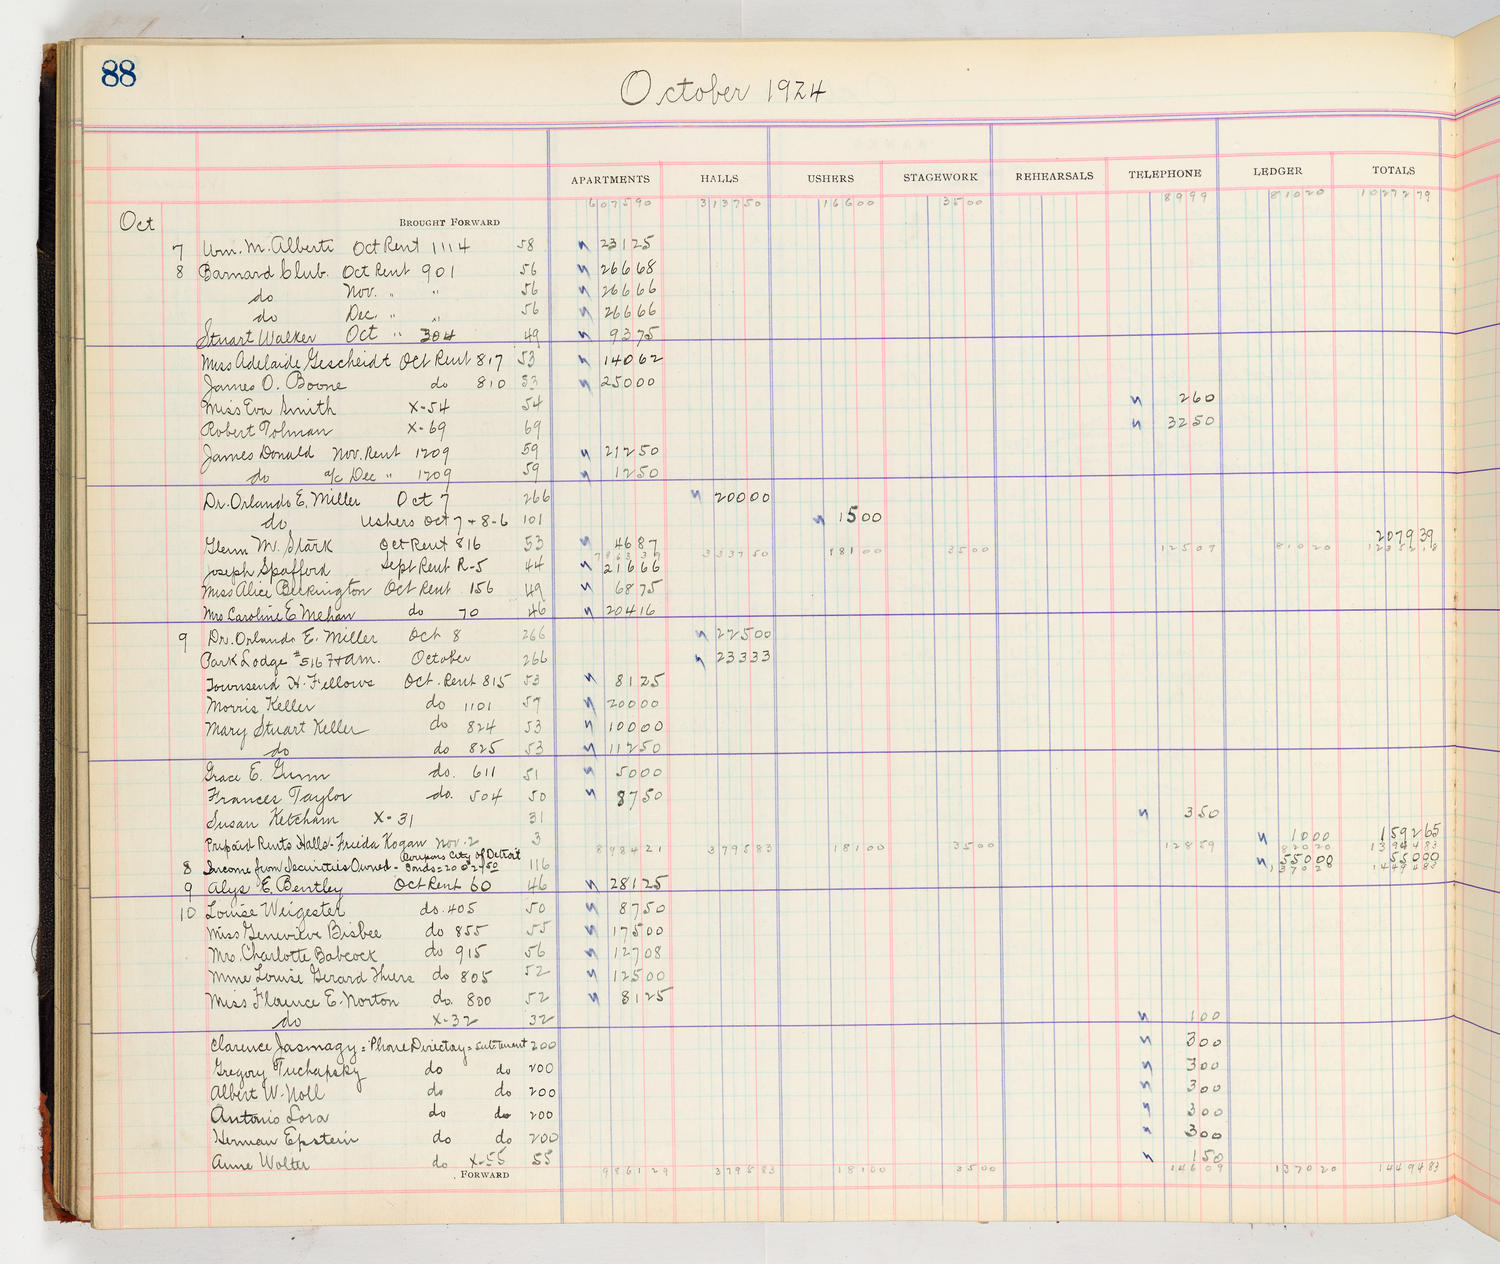 88
October 1924
APARTMENTS HALLS USHERS STAGEWORK REHEARSALS TELEPHONE LEDGER TOTALS
607590 313750 16600 3500 8999 81020 1027279
Oct BROUGHT FORWARD
7 Wm. M. Alberti Oct Rent 1114 58 23125
8 Barnard Club. Oct Rent 901 56 26668
do Nov. " " 56 26666
do Dec. " " 56 26666
Stuart Walker Oct " 304 49 9375
Miss Adelaide Gescheidt Oct Rent 817 53 14062
James O. Boone do 810 53 25000
Miss Eva Smith X-54 54 260
Robert Tolman X-69 69 3250
James Donald Nov. Rent 1209 59 21250
do a/c Dec " 1209 59 1250
Dr. Orlando E. Miller Oct 7 266 20000
do Ushers Oct 7 + 8-6 101 1500
Glenn M. Stark Oct Rent 816 53 4687 207939
786337 333750 18100 3500 12509 81020 1235218
Joseph Spafford Sept Rent R-5 44 21666
Miss Alice Oct Rent 156 49 6875
Mrs Caroline E Mehan do 70 46 20416
9 Dr. Orlando E. Miller Oct 8 266 22500
Park Lodge #516 F+am. October 266 23333
Townsend H. Fellows Oct. Rent 815 53 8125
Morris Keller do 1101 57 20000
Mary Stuart Keller do 824 53 10000
do do 825 53 11250
Grace E. Gunn do. 611 51 5000
Frances Taylor do. 504 50 8750
Susan Ketcham X-31 31 350
Prepaid Rents Halls - Frieda Kogan Nov-2 3 1000 159265
898421 379583 18100 3500 12859 82020 1394483
8 Income from Securities Owned - Coupons City of Detroit Bonds = 20 @ 27.50 116 55000 55000
137020 1449483
9 Alys E. Bentley Oct Rent 60 46 28125
10 Louise Weigester do. 405 50 8750
Miss Genevieve Bisbee do 855 55 17500
Mrs. Charlotte Babcock do 915 56 12708
Mme Louise Gerard Thiers do 805 52 12500
Miss Florence E. Norton do. 800 52 8125
do X-32 32 100
Clarence Jasmagy = Phone Directory = 200 300
Gregory Tuchapsky do do 200 300
Albert W. Noll do do 200 300
Antonio Lora do do 200 300
Herman Epstein do do 200 300
Anne Wolter do X-55 55 150
FORWARD 986129 379583 18100 3500 14609 137020 1449483